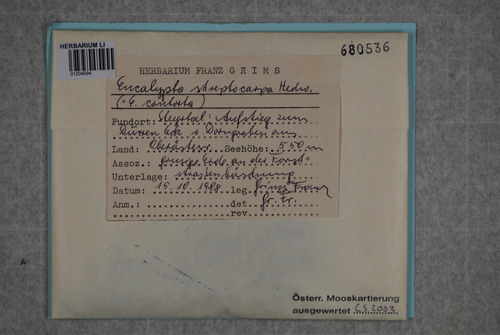 HERBARIUM LI
680536
HERBARIUM FRANZ GRIMS
Encalypta streptocarpa Hedw.
(= E. contorta)
Fundort: Steyrtal: Aufstieg zum
Dürren Eck v. Dorngraben aus
Land: Oberösterr. Seehöhe: 550 m
Assoz.: Erde an der Forst-
Unterlage: straßenböschung
Datum: 15.10.1988 leg. Grims Franz
Anm.: det. Gr. Fr.
rev.
Österr. Mooskartierung
ausgewertet C.S. 2003